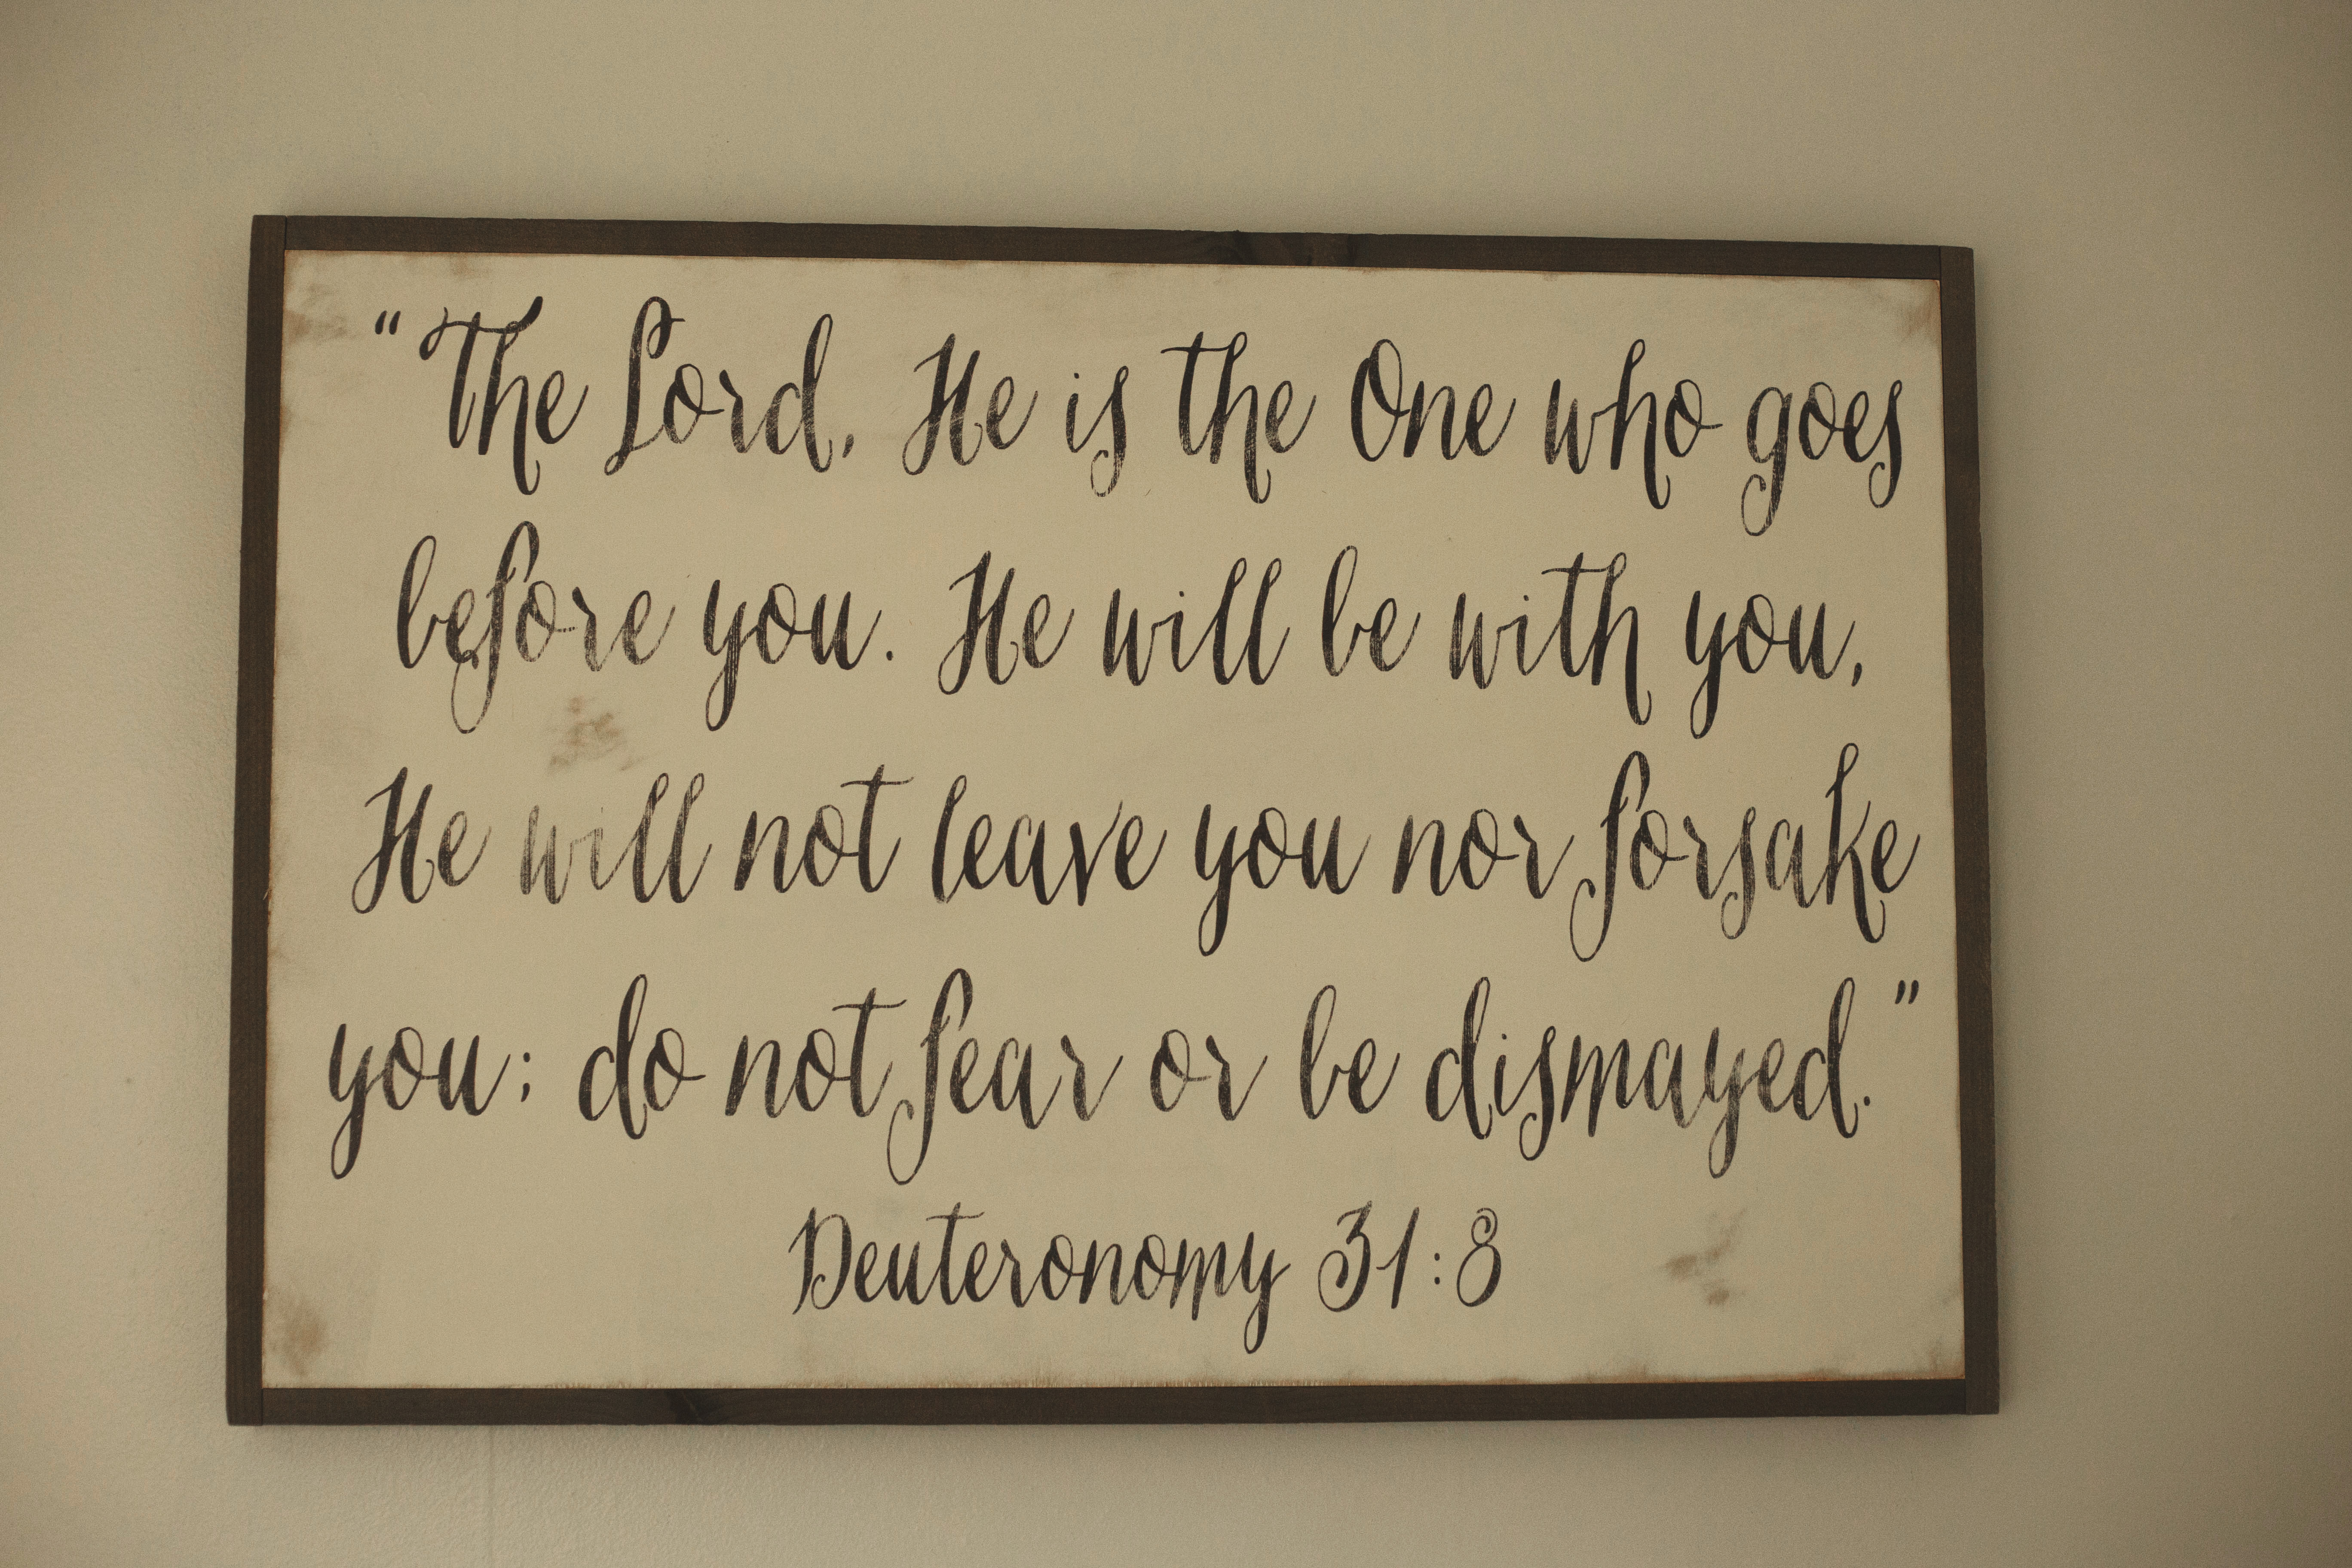 “The Lord, He is the One who goes
before you. He will be with you,
He will not leave you nor forsake
you; do not fear or be dismayed.”
Deuteronomy 31:8